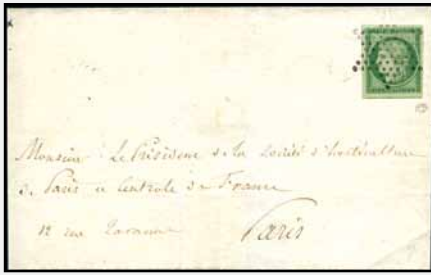 Monsieur Le Président de la Société d'horticulture
de Paris et Centrale de France
12 rue Taranne
Paris